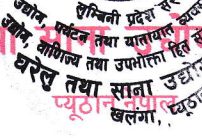 लुम्बिनी प्रदेश
उद्योग, पर्यटन तथा यातायात
उद्योग, वाणिज्य तथा उपभोक्ता हित
घरेलु तथा साना उद्योग
प्यूठान नेपाल
खलंगा, प्यूठान
साना उद्योग